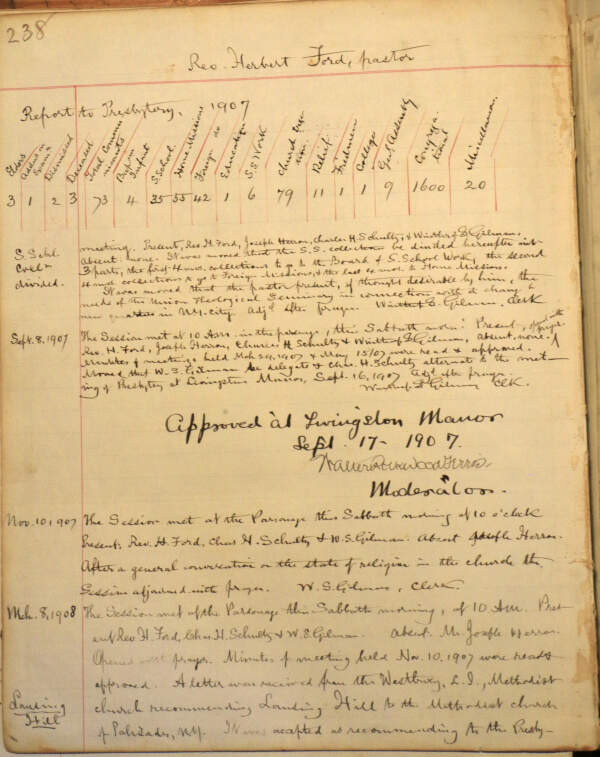 238
Rev. Herbert Ford, pastor
Report to Presbytery, 1907
Elders
Added on Exam
Dismissed
Deceased
Total Communicants
Baptism Infant
S. School
Home Missions
Foreign do
Education
S.S. Work
Church Erection
Relief
Freedmen
College
Gen. Assembly
Congregational
Miscellaneous
3 1 2 3 73 4 35 55 42 1 6 79 11 1 1 9 1600 20
S. Schl. meeting. Present, Rev. H. Ford, Joseph Herron, Charles H. Schultz, & Winthrop S. Gilman.
Absent none. It was moved that the S.S. collections be divided hereafter into
divided. 3 parts, the first 4 mo. collections to go to the Board of S. School Work, the second
4 mo. collections to go to Foreign Missions, & the last 4 mo. to Home Missions.
It was moved that the pastor present, if thought desirable by him, the
needs of the Union Theological Seminary in connection with it change to
new quarters in N.Y. city. Adj. after prayer. Winthrop S. Gilman, Clk
Sept. 8, 1907 The Session met at 10 A.M. in the parsonage, this Sabbath morn. Present, opened with prayer
Rev. H. Ford, Joseph Herron, Charles H. Schultz & Winthrop S. Gilman, Absent, none.
Minutes of meetings held Mch 24, 1907 & May 15/07 were read & approved.
Moved that W. S. Gilman be delegate & Chas. H. Schultz alternate to the meet-
ing of Presbytery at Livingston Manor, Sept. 16, 1907 Adj. after prayer.
Winthrop S. Gilman Clk.
Approved at Livingston Manor
Sept. 17 - 1907.
Moderator.
Nov. 10, 1907 The Session met at the Parsonage this Sabbath morning at 10 o'clock
Present: Rev. H. Ford, Chas H. Schultz & W. S. Gilman. Absent Joseph Herron.
After a general conversation on the state of religion in the church the
Session adjourned with prayer. W. S. Gilman, Clerk.
Mch. 8, 1908 The Session met at the Parsonage this Sabbath morning, at 10 A.M. Pres-
ent Rev H. Ford, Chas H. Schultz & W. S. Gilman. Absent. Mr. Joseph Herron.
Opened with prayer. Minutes of meeting held Nov. 10, 1907 were read &
approved. A letter was received from the Westbury, L.I., Methodist
Lansing church recommending Lansing Hill to the Methodist church
Hill of Palisades, N.Y. It was accepted as recommending to the Presby-